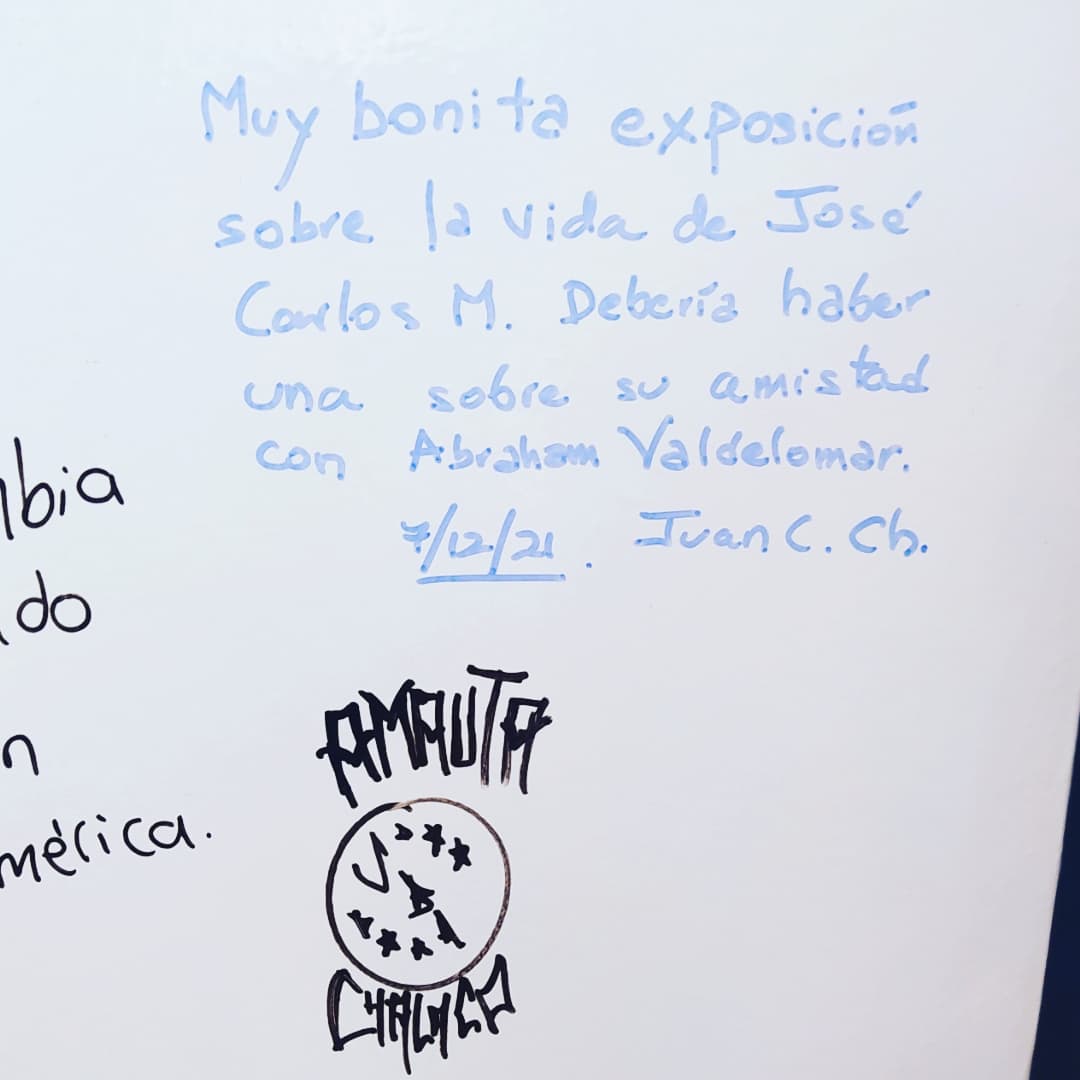 Muy bonita exposición
sobre la vida de José
Carlos M. Debería haber
una sobre su amistad
con Abraham Valdelomar.
7/12/21. Juan C. Ch.
bia
do
n
mérica.
AMAUTA
J
B
A